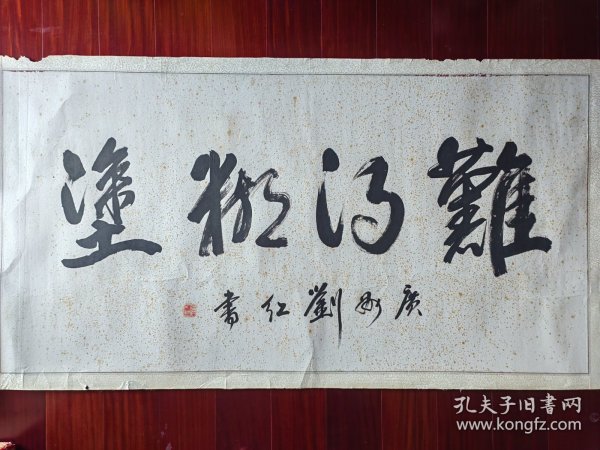 難得糊塗
廣州劉紅書
孔夫子旧書网
www.kongfz.com